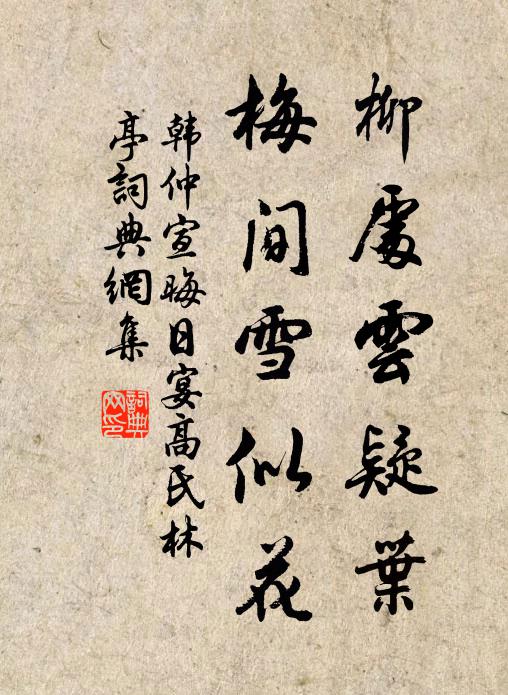 柳處雲疑葉
梅間雪似花
韩仲宣晦日宴高氏林
亭詞典網集
詞典
网印